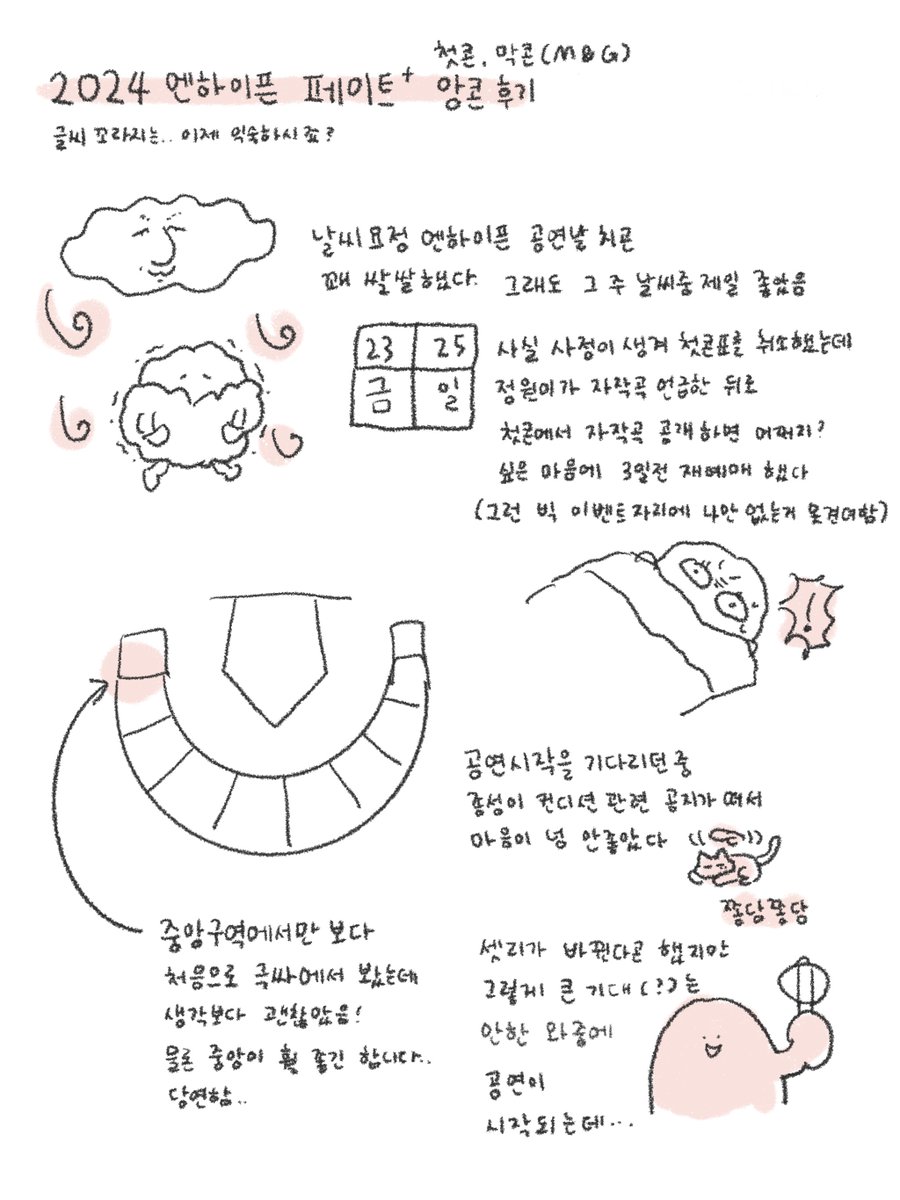 첫콘, 막콘(MBG)
2024 엔하이픈 페이트+ 앙콘 후기
글씨 꼬라지는.. 이제 익숙하시죠?
날씨요정 엔하이픈 공연날 치곤
꽤 쌀쌀했다. 그래도 그 주 날씨중 제일 좋았음
23 25
금 일
사실 사정이 생겨 첫콘표를 취소했는데
정원이가 자작곡 언급한 뒤로
첫콘에서 자작곡 공개하면 어떠지?
싶은 마음에 3일전 재예매 했다
(그런 빅 이벤트자리에 나만 없는거 못견뎌함)
!
공연시작을 기다리던 중
종성이 컨디션 관련 공지가 떠서
마음이 넝 안좋았다
쫑담쫑담
중앙구역에서만 보다
처음으로 극싸에서 봤는데
생각보다 괜찮았음!
물론 중앙이 훨 좋긴 합니다..
당연함..
셋리가 바뀐다곤 했지만
그렇게 큰 기대(?)는
안한 와중에
공연이
시작되는데...